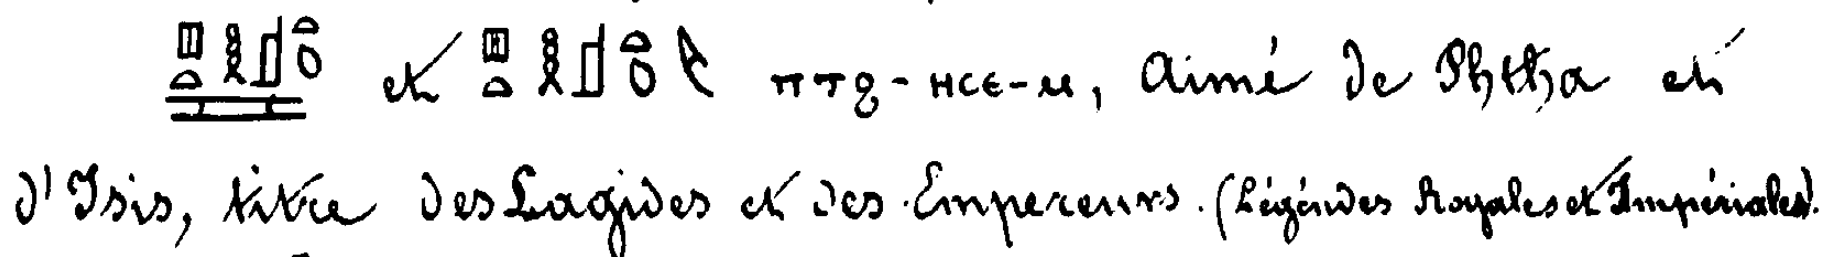 𓊪𓏏𓎛𓊨𓏏𓆇𓈘 et 𓊪𓏏𓎛𓊨𓏏𓆇𓌸 ⲡⲧϩ-ⲏⲥⲉ-ⲙ, Aimé de Phtha et
d'Isis, titre des Lagides et des Empereurs. (Légendes Royales et Impériales).